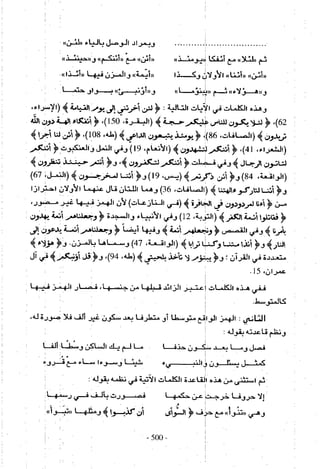 ويمراد الوصل بالياء «لئن»
ثم «لئلا» مع أئفكا «يومئذ» «أئن» مع «أئنكم» و«حينئذ»
«أئن» «أئنا» الأولان وكذا «أيمة» والمزن فيها «أئذا»
و«هؤلاء» ثم «يبنؤما» و«أؤنبئ» بواو حتما
وهذه الكلمات في الآيات التالية : ﴿ لئن أخرتني إلى يوم القيامة ﴾ (الإسراء،
62)، ﴿ لئلا يكون للناس عليكم حجة ﴾ (البقرة، 150)، ﴿ أئفكا آلهة دون الله
تريدون ﴾ (الصافات، 86)، ﴿ يومئذ يتبعون الداعي ﴾ (طه، 108)، ﴿ أئن لنا أجرا ﴾
(الشعراء، 41)، ﴿ أئنكم لتشهدون ﴾ (الأنعام، 19) وفي النمل والعنكبوت ﴿ أئنكم
لتأتون الرجال ﴾ وفي فصلت ﴿ أئنكم لتكفرون ﴾، و﴿ أنتم حينئذ تنظرون ﴾
(الواقعة، 84) و﴿ أئن ذكرتم ﴾ (يس، 19) و﴿ أئنا لمخرجون ﴾ (النمل، 67)
و﴿ أئنا لتاركو آلهتنا ﴾ (الصافات، 36) وهما اللذان قال عنهما الأولان احترازا
من ﴿ أءنا لمردودون في الحافرة ﴾ (في النازعات) لأن الهمز فيها غير مصور،
﴿ فقاتلوا أئمة الكفر ﴾ (التوبة، 12) وفي الأنبياء والسجدة ﴿ وجعلناهم أئمة يهدون
بأمرنا ﴾ وفي القصص ﴿ ونجعلهم أئمة ﴾ وفيها أيضا ﴿ وجعلناهم أئمة يدعون إلى
النار ﴾ و﴿ أئذا متنا وكنا ترابا ﴾ (الواقعة، 47) وسماها بالمزن، و﴿ هؤلاء ﴾
متعددة في القرآن ؛ و﴿ يبنؤم لا تأخذ بلحيتي ﴾ (طه، 94)، و﴿ قل أؤنبئكم ﴾ في آل
عمران، 15.
ففي هذه الكلمات اعتبر الزائد قبلها من جنسها، فصار الهمز فيها
كالمتوسط.
الثاني : الهمز الواقع متوسطا أو متطرفا بعد سكون غير ألف فلا صورة له،
ونظم قاعدته بقوله :
فصل وما بعد سكون حذفا ما لم يك الساكن وسطا ألفا
كمثل يسئلون والنبيء شيئا وسوءا ساء مع قروء
ثم استثنى من هذه القاعدة الكلمات الآتية في نظمه بقوله :
إلا حروفا خرجت عن حكمها فصورت بألف في رسمها
وهي «تنوأ» مع حرف ﴿ السوأى أن كذبوا ﴾ ومثلها «تبوأ»
- 500 -